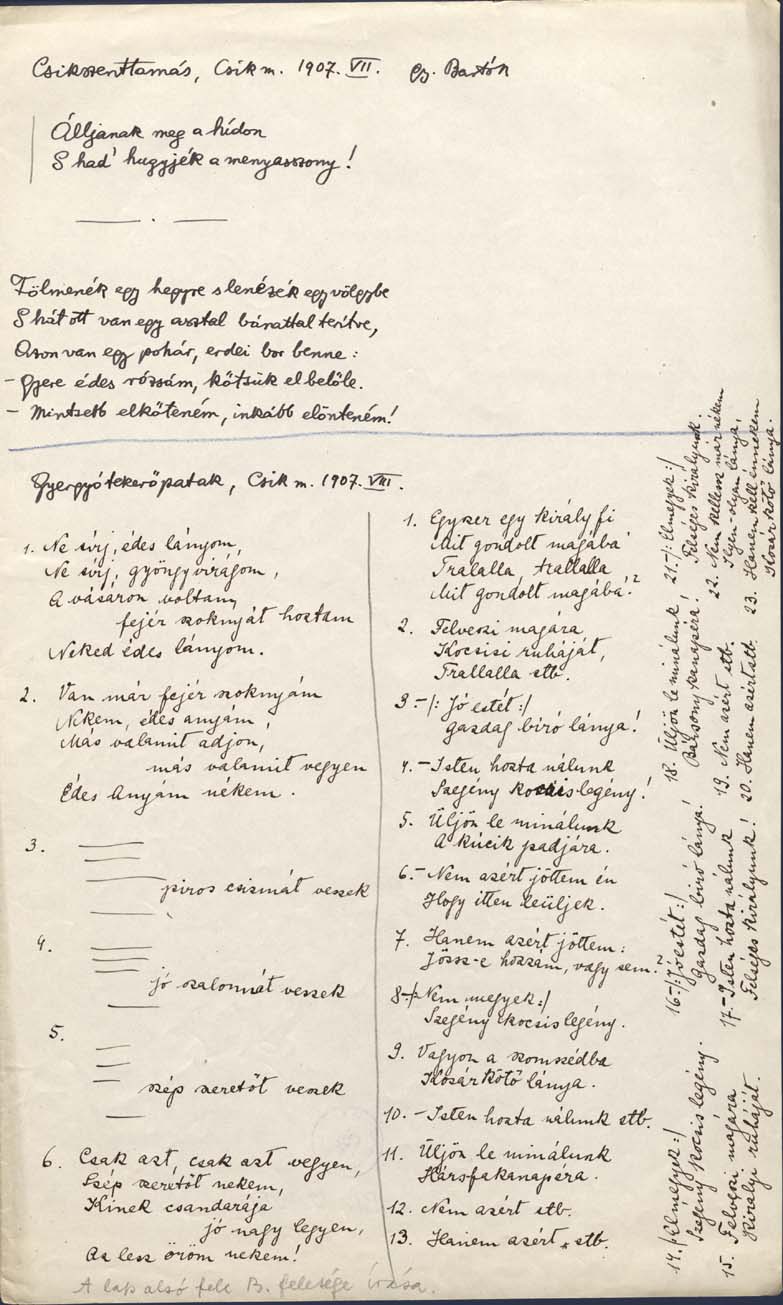 Csikszenttamás, Csík m. 1907. VII. gy. Bartók
Álljanak meg a hídon
S had' hugyjék a menyasszony!
Fölmenék egy hegyre s lenézék egy völgybe
S hát ott van egy asztal bánattal terítve,
Azon van egy pohár, erdei bor benne:
- Gyere édes rózsám, kötsük el belőle.
- Mintsebb elköteném, inkább elönteném!
Gyergyótekerőpatak, Csík m. 1907. VIII.
1. Ne sírj, édes lányom,
Ne sírj, gyöngyvirágom,
A vásáron voltam,
fejér szoknyát hoztam
Neked édes lányom.
2. Van már fejér szoknyám
Nékem, édes anyám,
Más valamit adjon,
más valamit vegyen
Édes Anyám nékem.
3.
piros csizmát veszek
4.
jó szalonnát veszek
5.
szép szeretőt veszek
6. Csak azt, csak azt vegyen,
Szép szeretőt nekem,
Kinek csandarája
jó nagy legyen,
Az lesz öröm nekem!
1. Egyszer egy király fi
Mit gondolt magába'
Tralalla, trallalla
Mit gondolt magába'?
2. Felveszi magára
Kocsisi ruháját,
Trallalla stb.
3. -/: Jó estét :/
gazdag bíró lánya!
4. - Isten hozta nálunk
Szegény kocsislegény!
5. Üljön le minálunk
A kúcik padjára.
6. - Nem azért jöttem én
Hogy itten leüljek.
7. Hanem azért jöttem:
Jössz-e hozzám, vagy sem?
8 -/: Nem megyek :/
Szegény kocsislegény.
9. Vagyon a szomszédba
Kosárkötő lánya.
10. - Isten hozta nálunk stb.
11. Üljön le minálunk
Hársfakanapéra.
12. Nem azért stb.
13. Hanem azért stb.
14. /: Elmegyek :/
Szegény kocsis legény.
15. Felveszi magára
Királyi ruháját.
16 -/: Jó estét :/
gazdag bíró lánya!
17 - Isten hozta nálunk
Felséges királyunk!
18. Üljön le minálunk
Bársony kanapéra!
19. Nem azért stb.
20. Hanem azért stb.
21. -/: Elmegyek :/
Felséges királyunk.
22. Nem kellesz már nékem
Ilyen-olyan lánya,
23. Hanem kell énnekem
Kosárkötő lánya.
A lap alsó fele B. felesége írása.